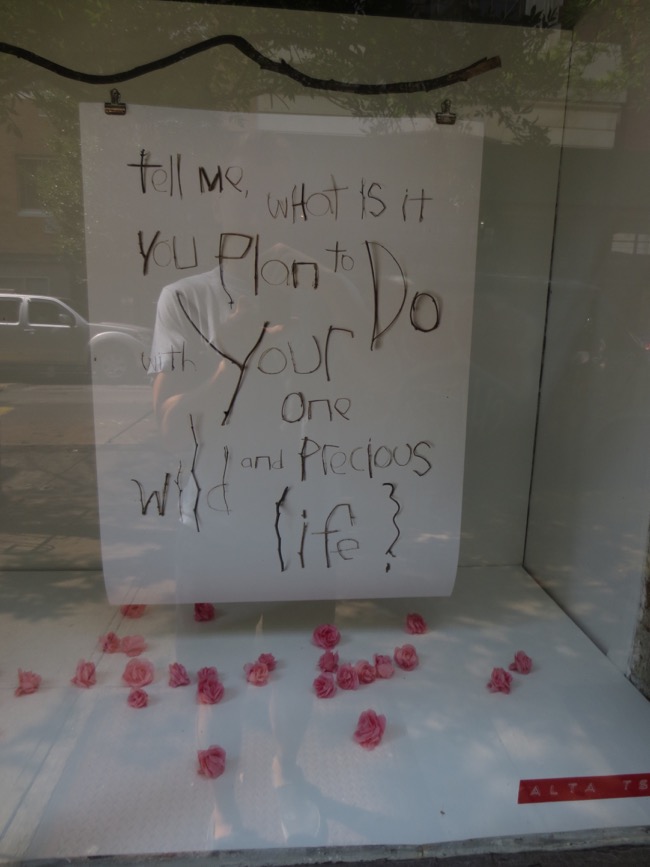 tell Me, wHat IS it
You Plan to Do
with Your
one
wild and Precious
life?
ALTA TE